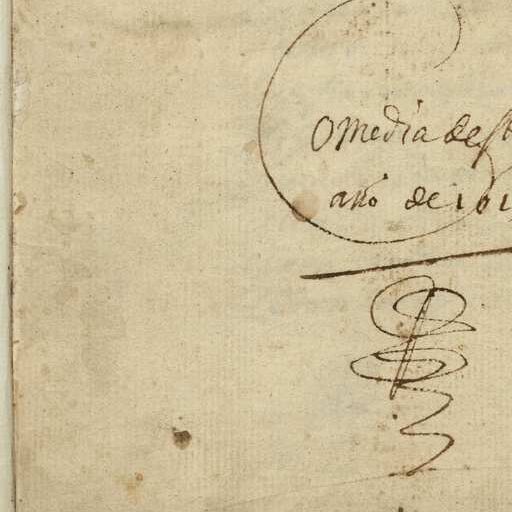 Comedia dest
año de 161